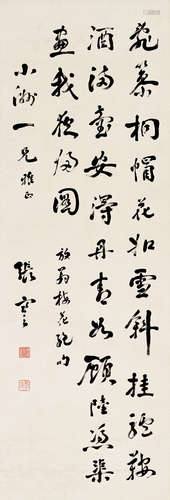 亂篸桐帽花如雪斜挂驢鞍
酒滿壺安得丹青如顧陸憑渠
畫我夜歸圖
放翁梅花絕句
小洲一兄雅正
張謇